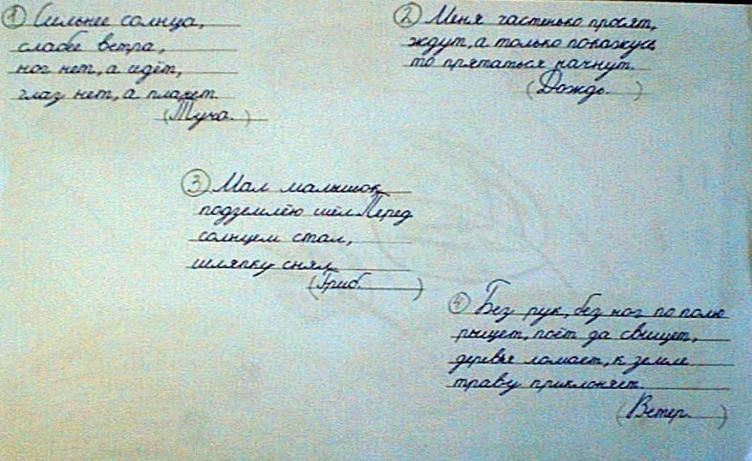 1 Сильнее солнца,
слабее ветра,
ног нет, а идёт,
глаз нет, а плачет.
(Туча.)
2 Меня частенько просят,
ждут, а только покажусь
то прятаться начнут.
(Дождь.)
3 Мал малышок
подземлёю шёл Перед
солнцем стал,
шляпку снял
(Гриб.)
4 Без рук, без ног по полю
рыщет, поёт да свищет,
деревья ломает, к земле
траву приклоняет.
(Ветер.)